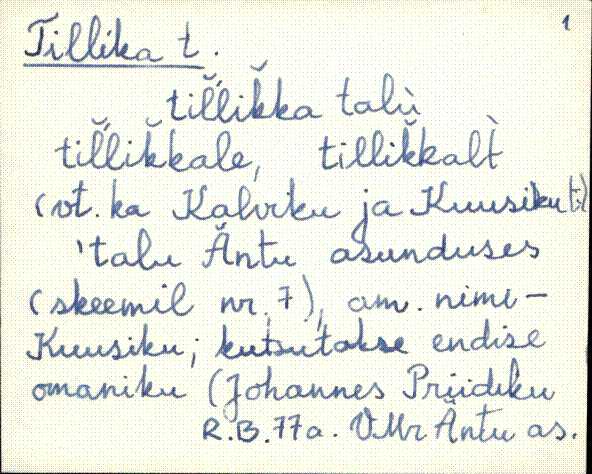 1
Tillika t.
til̆lik̆ka talù
til̆lik̆kale, tillik̆kalt̀
(vt. ka Kalviku ja Kuusiku t.)
'talu Äntu asunduses
(skeemil nr. 7), am. nimi-
Kuusiku; kutsutakse endise
omaniku (Johannes Priidiku
R.B. 77a. VMr Äntu as.